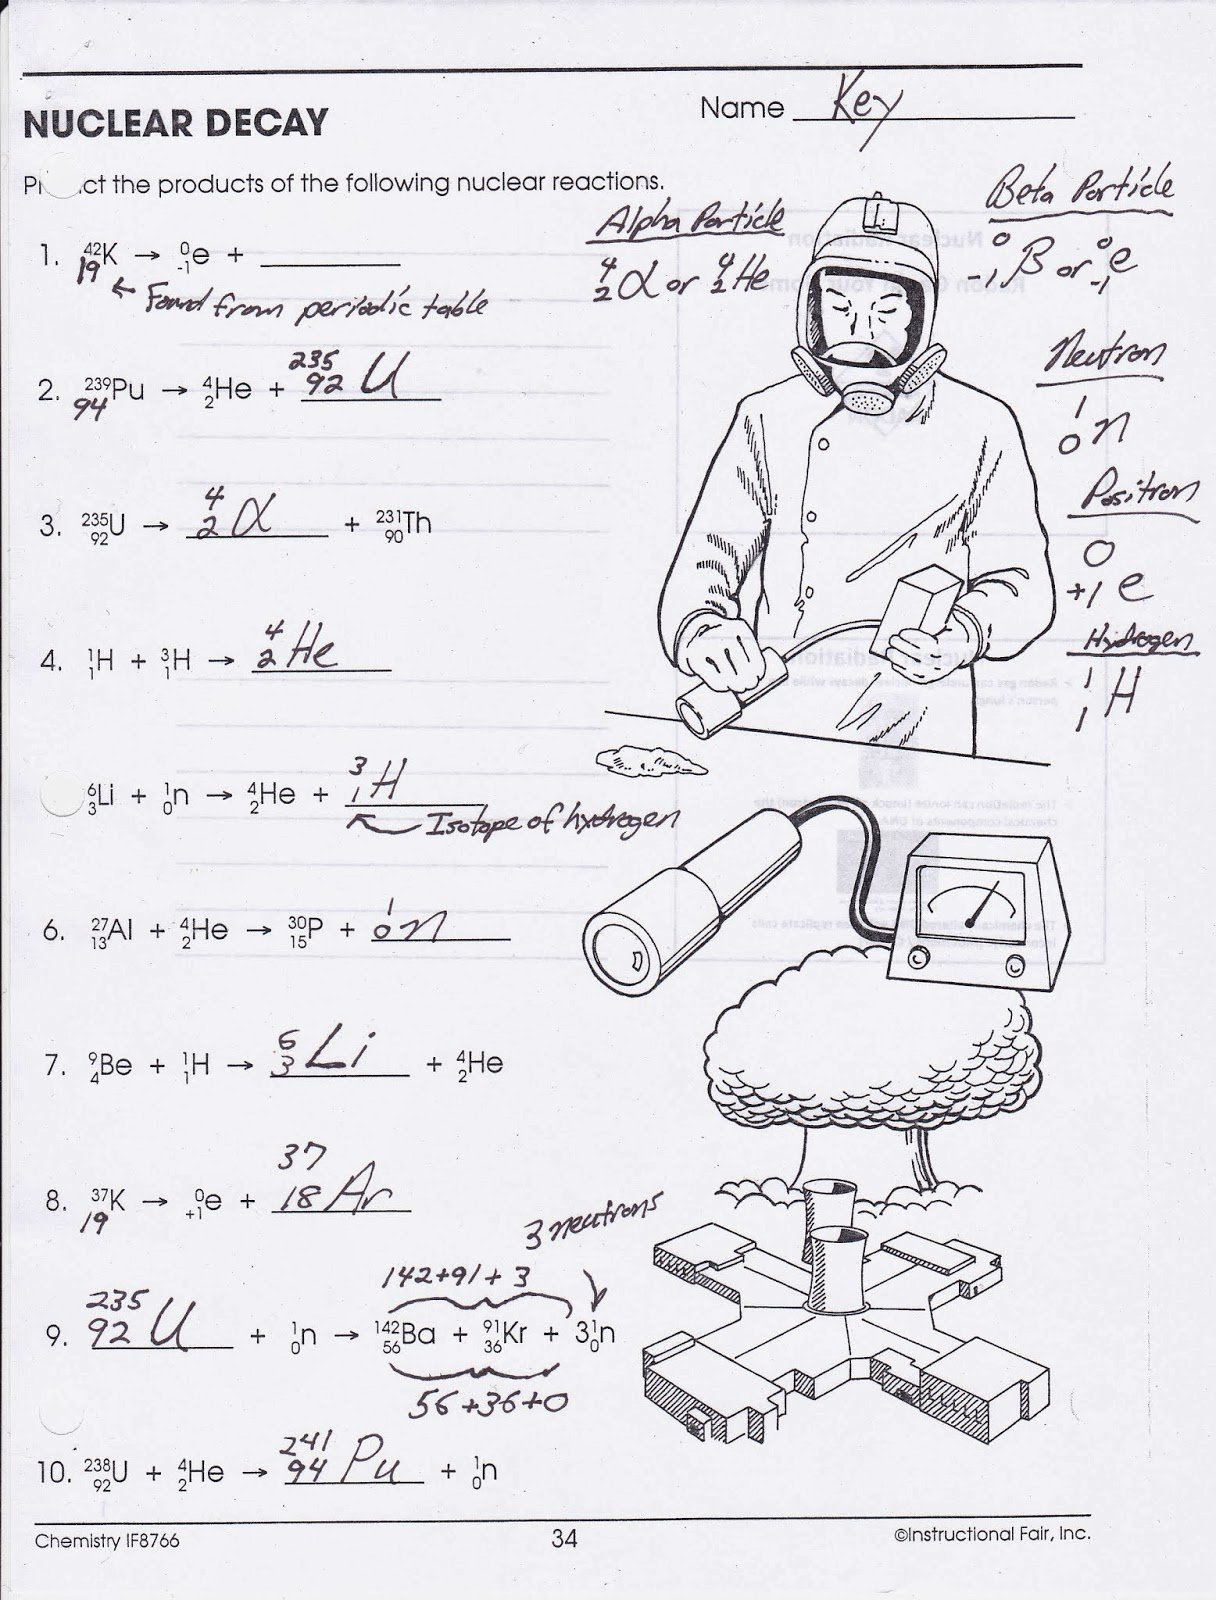 Name Key
NUCLEAR DECAY
ct the products of the following nuclear reactions.
Alpha Particle
⁴₂α or ⁴₂He
Beta Particle
⁰₋₁β or ⁰₋₁e
Neutron
¹₀n
Positron
⁰₊₁e
Hydrogen
¹₁H
1. ⁴²₁₉K → ⁰₋₁e + ________
← Found from periodic table
2. ²³⁹₉₄Pu → ⁴₂He + ²³⁵₉₂U
3. ²³⁵₉₂U → ⁴₂α + ²³¹₉₀Th
4. ¹₁H + ³₁H → ⁴₂He
⁶₃Li + ¹₀n → ⁴₂He + ³₁H
← Isotope of hydrogen
6. ²⁷₁₃Al + ⁴₂He → ³⁰₁₅P + ¹₀n
7. ⁹₄Be + ¹₁H → ⁶₃Li + ⁴₂He
8. ³⁷₁₉K → ⁰₊₁e + ³⁷₁₈Ar
3 neutrons
142+91+3
9. ²³⁵₉₂U + ¹₀n → ¹⁴²₅₆Ba + ⁹¹₃₆Kr + 3¹₀n
56+36+0
10. ²³⁸₉₂U + ⁴₂He → ²⁴¹₉₄Pu + ¹₀n
Chemistry IF8766
34
©Instructional Fair, Inc.